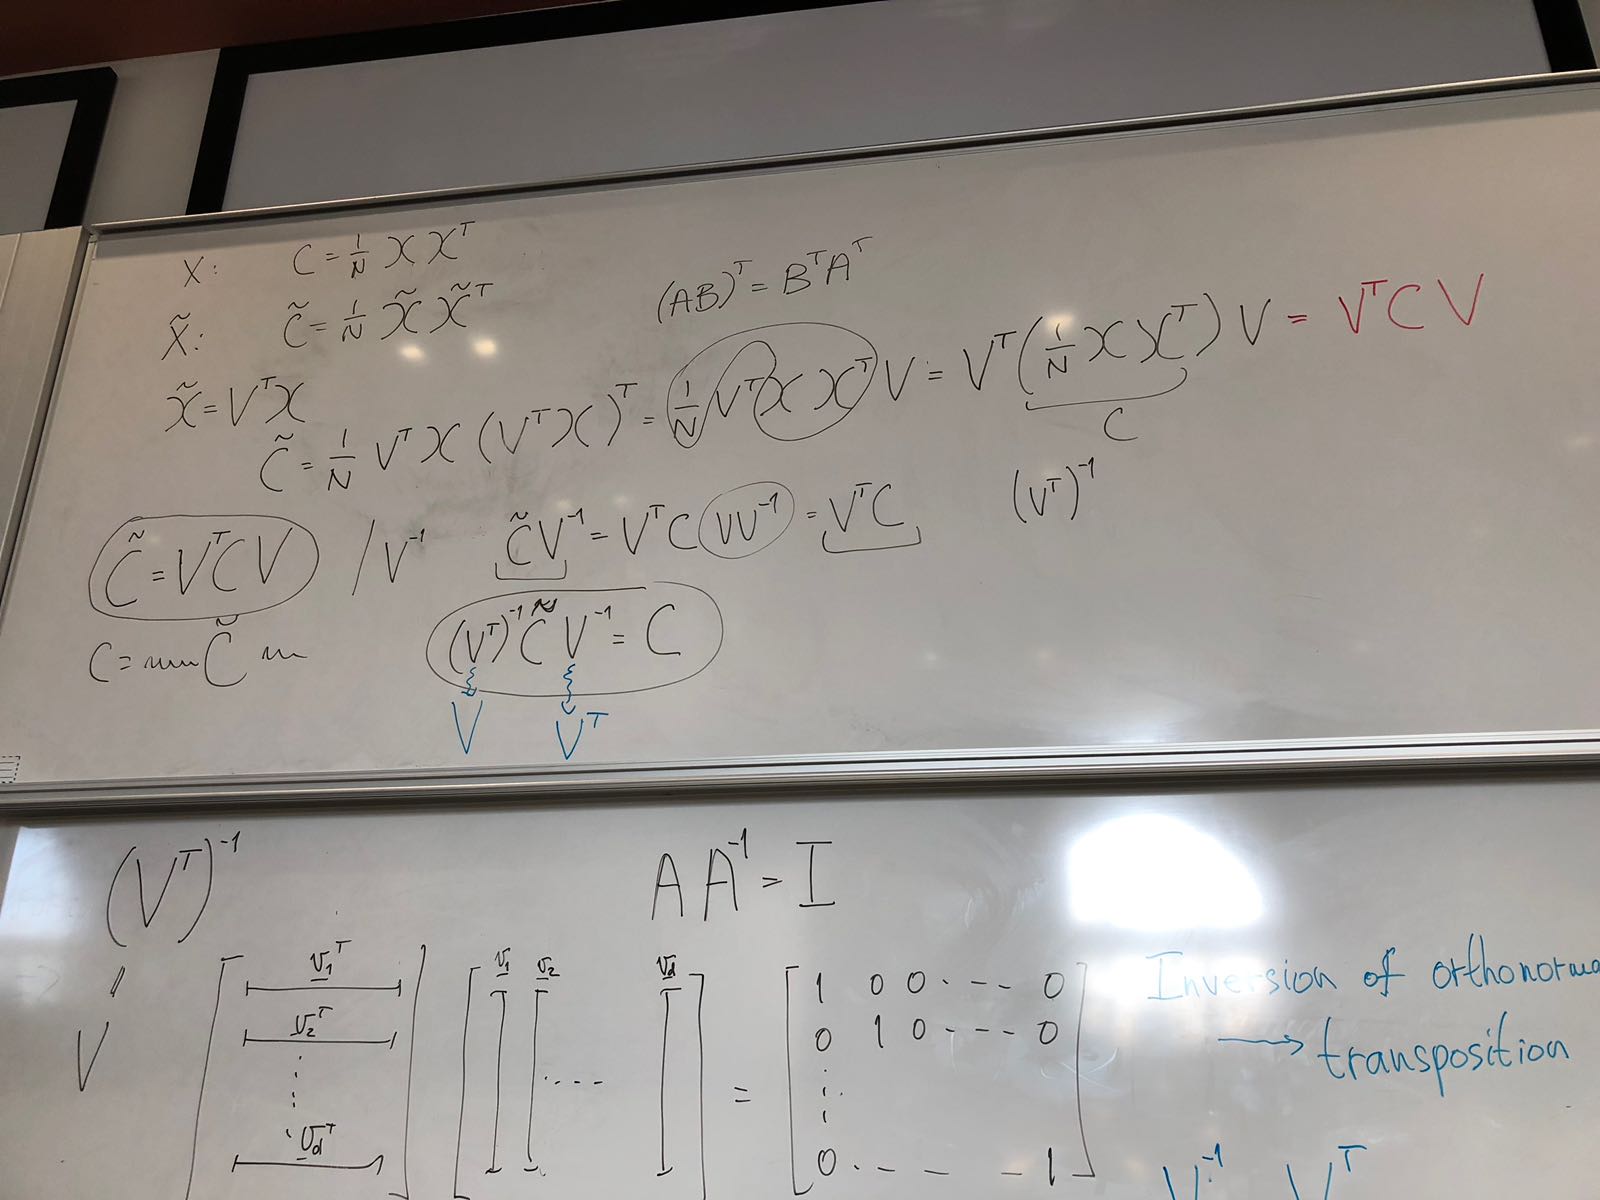 X: C = 1/N X Xᵀ
X̃: C̃ = 1/N X̃ X̃ᵀ
(AB)ᵀ = BᵀAᵀ
X̃ = VᵀX
C̃ = 1/N VᵀX (VᵀX)ᵀ = 1/N VᵀX Xᵀ V = Vᵀ (1/N X Xᵀ) V = VᵀCV
C
C̃ = VᵀCV / V⁻¹ C̃V⁻¹ = VᵀC VV⁻¹ = VᵀC (Vᵀ)⁻¹
C = C̃
(Vᵀ)⁻¹ C̃ V⁻¹ = C
V Vᵀ
(Vᵀ)⁻¹ A A⁻¹ = I
V
v₁ᵀ
v₂ᵀ
⋮
v_dᵀ
v₁ v₂ .... v_d
=
1 0 0 . - - 0
0 1 0 . - - - 0
⋮
0 . - - - 1
Inversion of
→ transposition
V⁻¹ Vᵀ